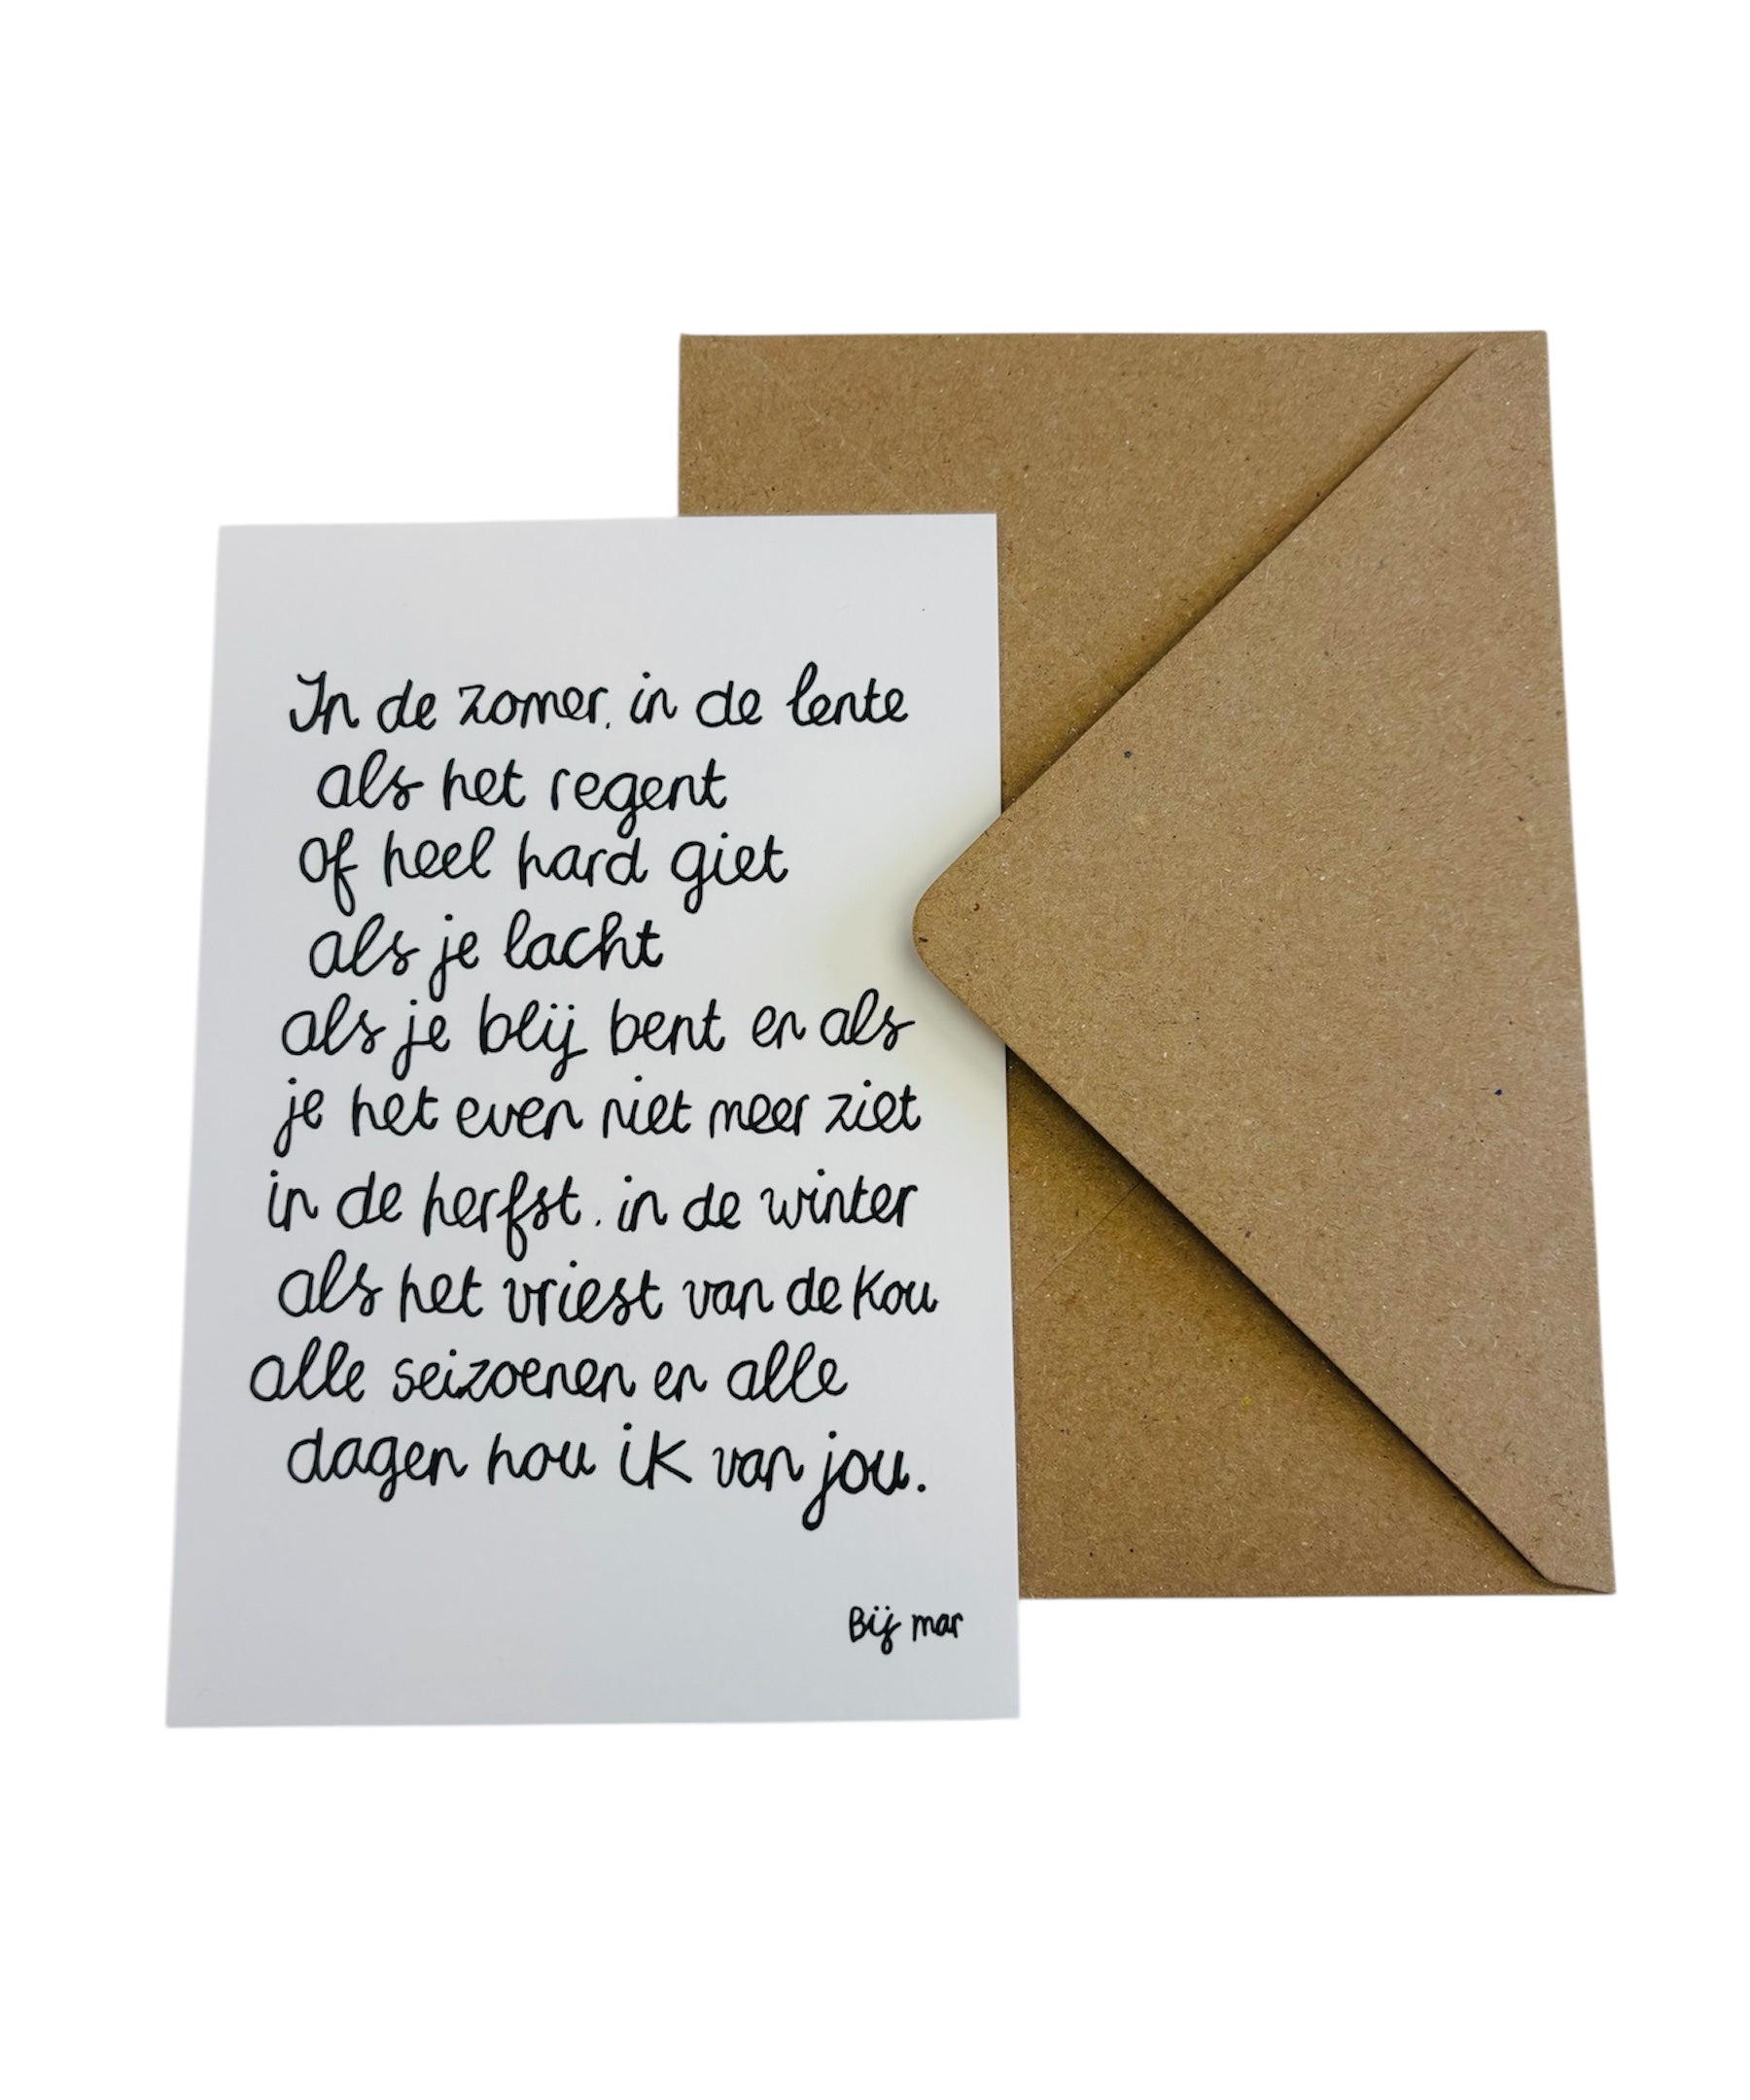 In de zomer, in de lente
als het regent
of heel hard giet
als je lacht
als je blij bent en als
je het even niet meer ziet
in de herfst, in de winter
als het vriest van de kou
alle seizoenen en alle
dagen hou ik van jou.
Bij mar